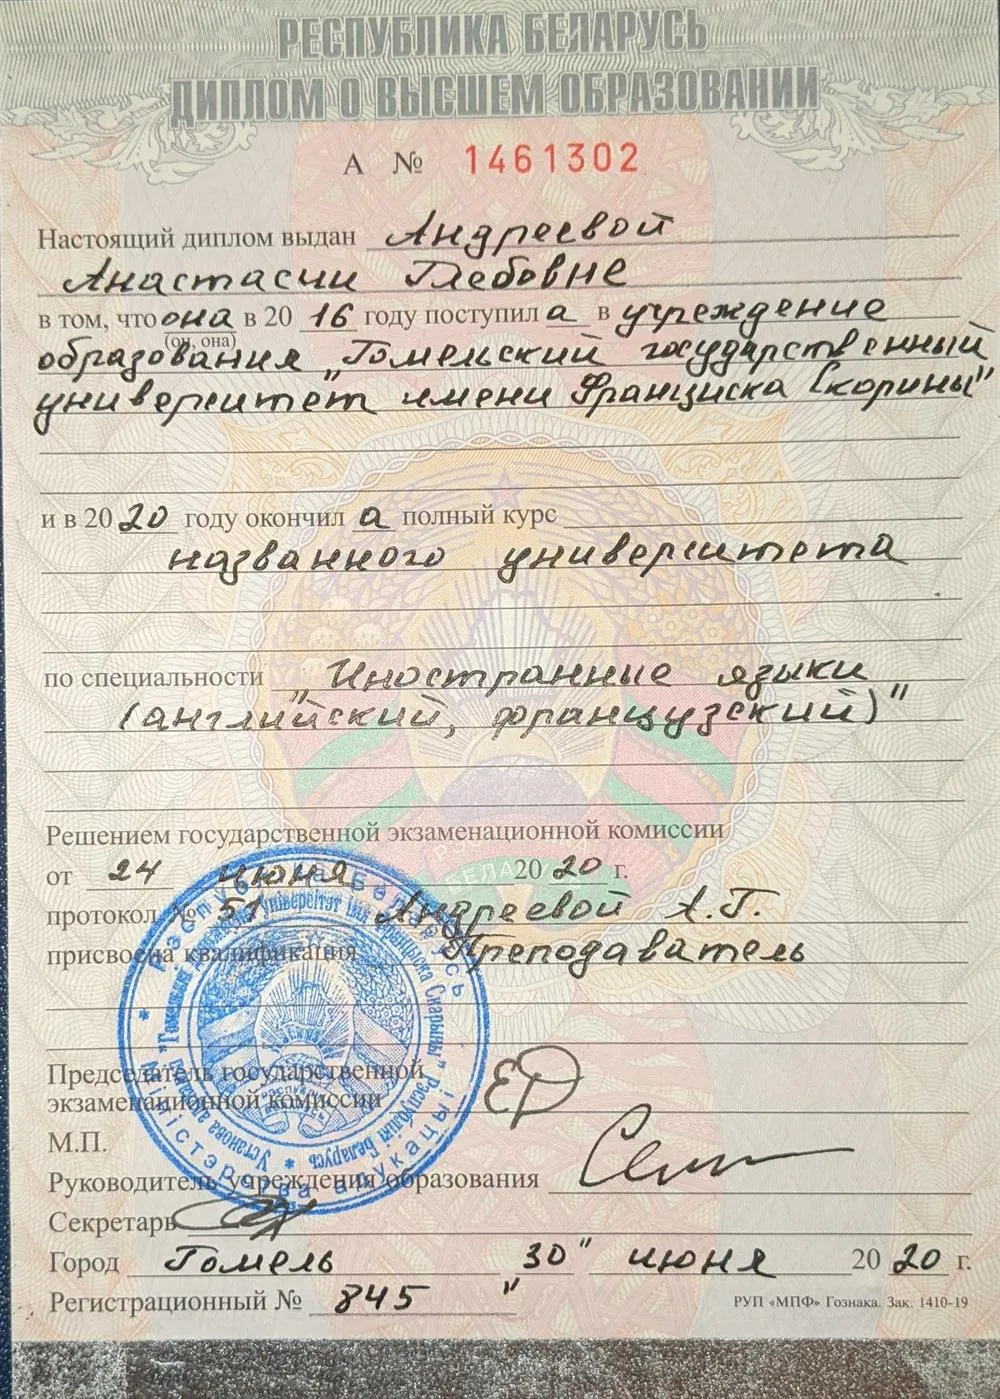 РЕСПУБЛИКА БЕЛАРУСЬ
ДИПЛОМ О ВЫСШЕМ ОБРАЗОВАНИИ
А № 1461302
Настоящий диплом выдан Андреевой
Анастасии Глебовне
в том, что она в 20 16 году поступил а в учреждение
(он, она)
образования „Гомельский государственный
университет имени Франциска Скорины"
и в 20 20 году окончил а полный курс
названного университета
по специальности „Иностранные языки
(английский, французский)"
Решением государственной экзаменационной комиссии
от 24 июня 20 20 г.
протокол № 51 Андреевой А.Г.
присвоена квалификация Преподаватель
Председатель государственной
экзаменационной комиссии
М.П.
Руководитель учреждения образования
Секретарь
Город Гомель " 30 " июня 20 20 г.
Регистрационный № 845
РУП «МПФ» Гознака. Зак. 1410-19
Рэспубліка Беларусь * Міністэрства адукацыі *
Установа адукацыі "Гомельскі дзяржаўны ўніверсітэт імя Францыска Скарыны" Рэспублікі Беларусь *